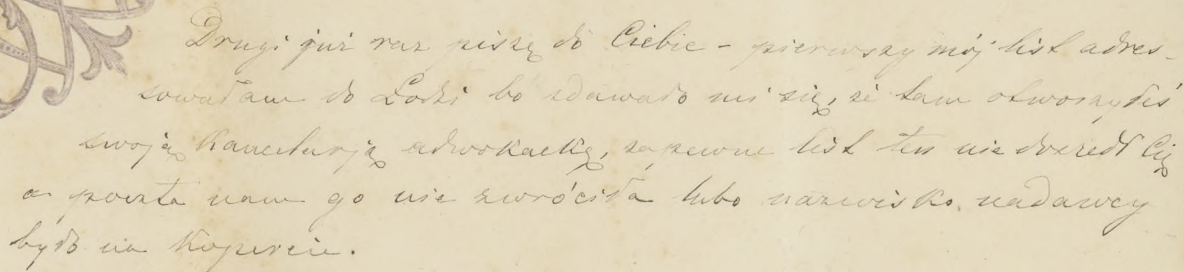 Drugi już raz piszę do Ciebie – pierwszy mój list adres-
sowałam do Łodzi bo zdawało mi się, że tam otworzyłeś
swoją kancelarją adwokacką, zapewne list ten nie doszedł Cię
a poczta nam go nie zwróciła lubo nazwisko nadawcy
było na kopercie.